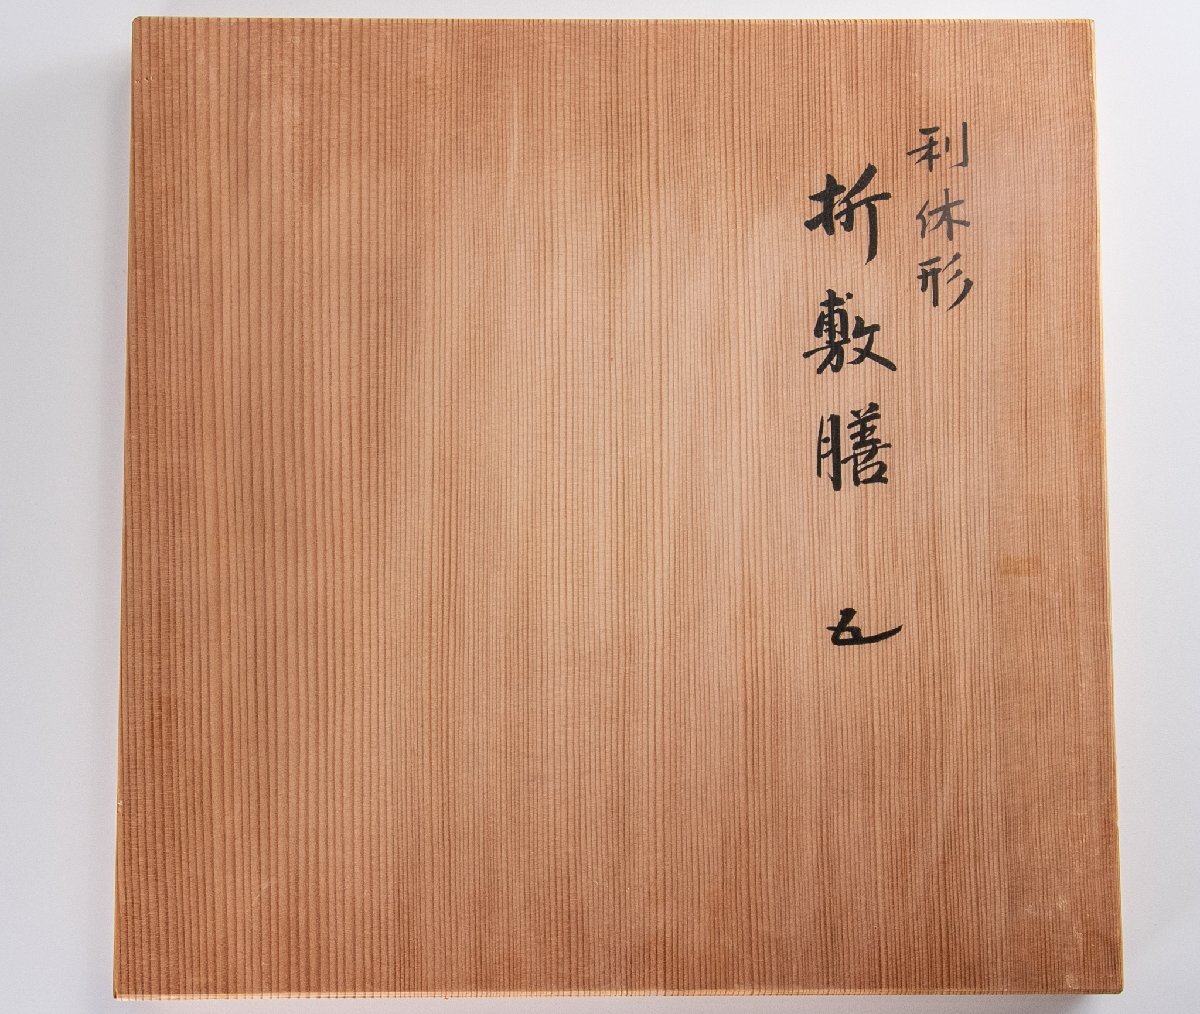 利休形
折敷膳 五